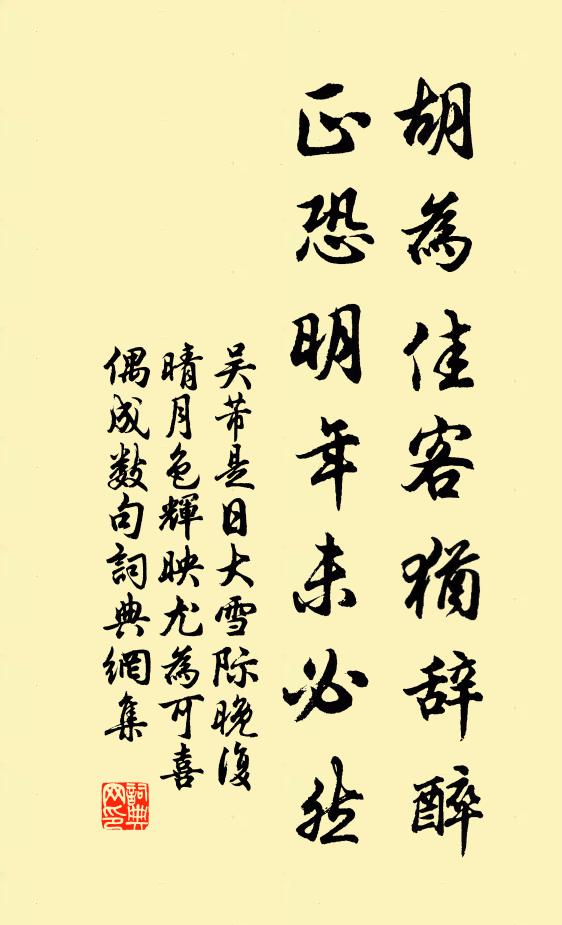 胡為佳客猶辞醉
正恐明年未必然
吴芾是日大雪际晚復
晴月色輝映尤為可喜
偶成数句詞典網集
詞典
网印